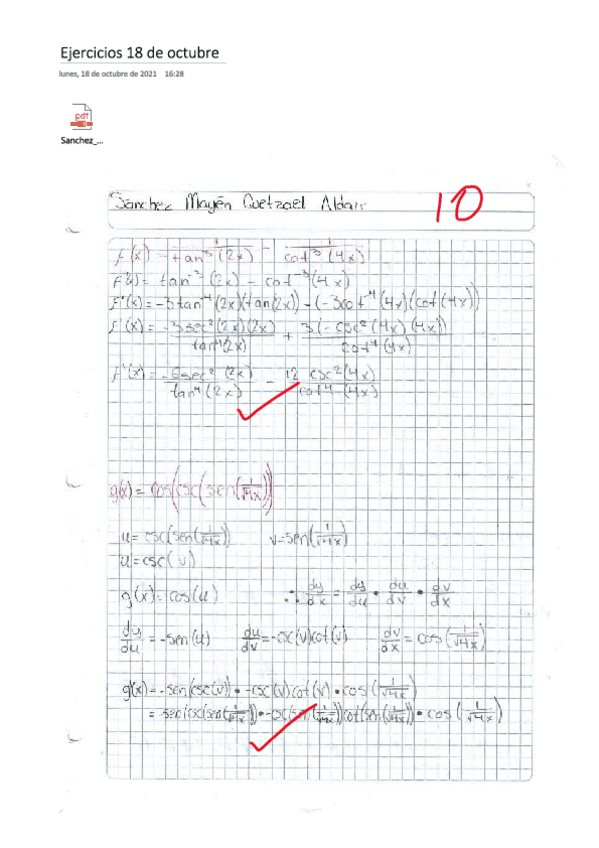 Ejercicios 18 de octubre
lunes, 18 de octubre de 2021 16:28
pdf
Sanchez_...
Sánchez Mayén Quetzael Aldair 10
f(x) = 1/tan³(2x) - 1/cot³(4x)
f(x) = tan⁻³(2x) - cot⁻³(4x)
f'(x) = -3tan⁻⁴(2x)(tan(2x)) - (-3cot⁻⁴(4x)(cot(4x))
f'(x) = -3sec²(2x)(2x)/tan⁴(2x) + 3(-csc²(4x)(4x))/cot⁴(4x)
f'(x) = -6sec²(2x)/tan⁴(2x) - 12 csc²(4x)/cot⁴(4x)
g(x) = cos(csc(sen(1/√4x)))
u = csc(sen(1/√4x)) v = sen(1/√4x)
u = csc(v)
g(x) = cos(u) ∴ dy/dx = dy/du • du/dv • dv/dx
dy/du = -sen(u) du/dv = -csc(v)cot(v) dv/dx = cos(1/√4x)
g'(x) = -sen(csc(v)) • -csc(v)cot(v) • cos(1/√4x)
= -sen(csc(sen(1/√4x)) • -csc(sen(1/√4x))cot(sen(1/√4x)) • cos(1/√4x)